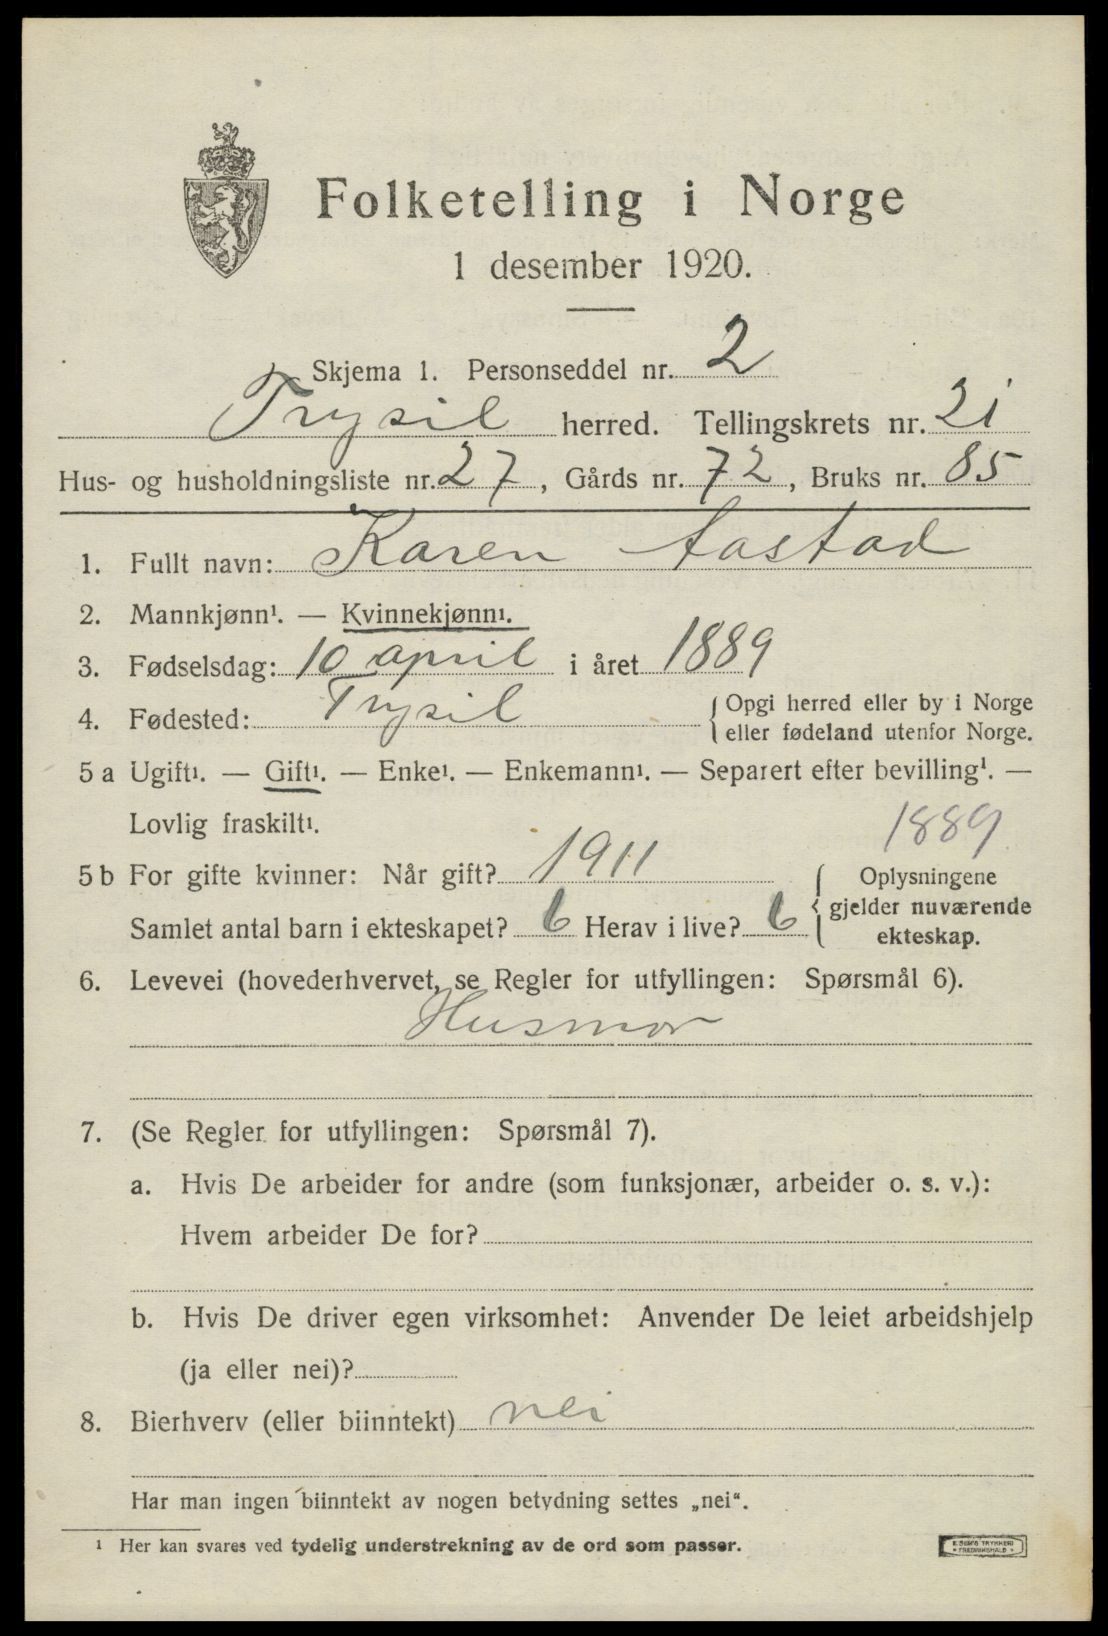 Folketelling i Norge
1 desember 1920.
Skjema 1. Personseddel nr. 2
Trysil herred. Tellingskrets nr. 21
Hus- og husholdningsliste nr. 27, Gårds nr. 72, Bruks nr. 85
1. Fullt navn: Karen Aastad
2. Mannkjønn¹. — Kvinnekjønn¹.
3. Fødselsdag: 10 april i året 1889
4. Fødested: Trysil { Opgi herred eller by i Norge
eller fødeland utenfor Norge.
5 a Ugift¹. — Gift¹. — Enke¹. — Enkemann¹. — Separert efter bevilling¹. —
Lovlig fraskilt¹.
1889
5 b For gifte kvinner: Når gift? 1911 { Oplysningene
gjelder nuværende
ekteskap.
Samlet antal barn i ekteskapet? 6 Herav i live? 6
6. Levevei (hovederhvervet, se Regler for utfyllingen: Spørsmål 6).
Husmor
7. (Se Regler for utfyllingen: Spørsmål 7).
a. Hvis De arbeider for andre (som funksjonær, arbeider o. s. v.):
Hvem arbeider De for?
b. Hvis De driver egen virksomhet: Anvender De leiet arbeidshjelp
(ja eller nei)?
8. Bierhverv (eller biinntekt) nei
Har man ingen biinntekt av nogen betydning settes „nei“.
¹ Her kan svares ved tydelig understrekning av de ord som passer.
E. SEM'S TRYKKERI
• FREDRIKSHALD •